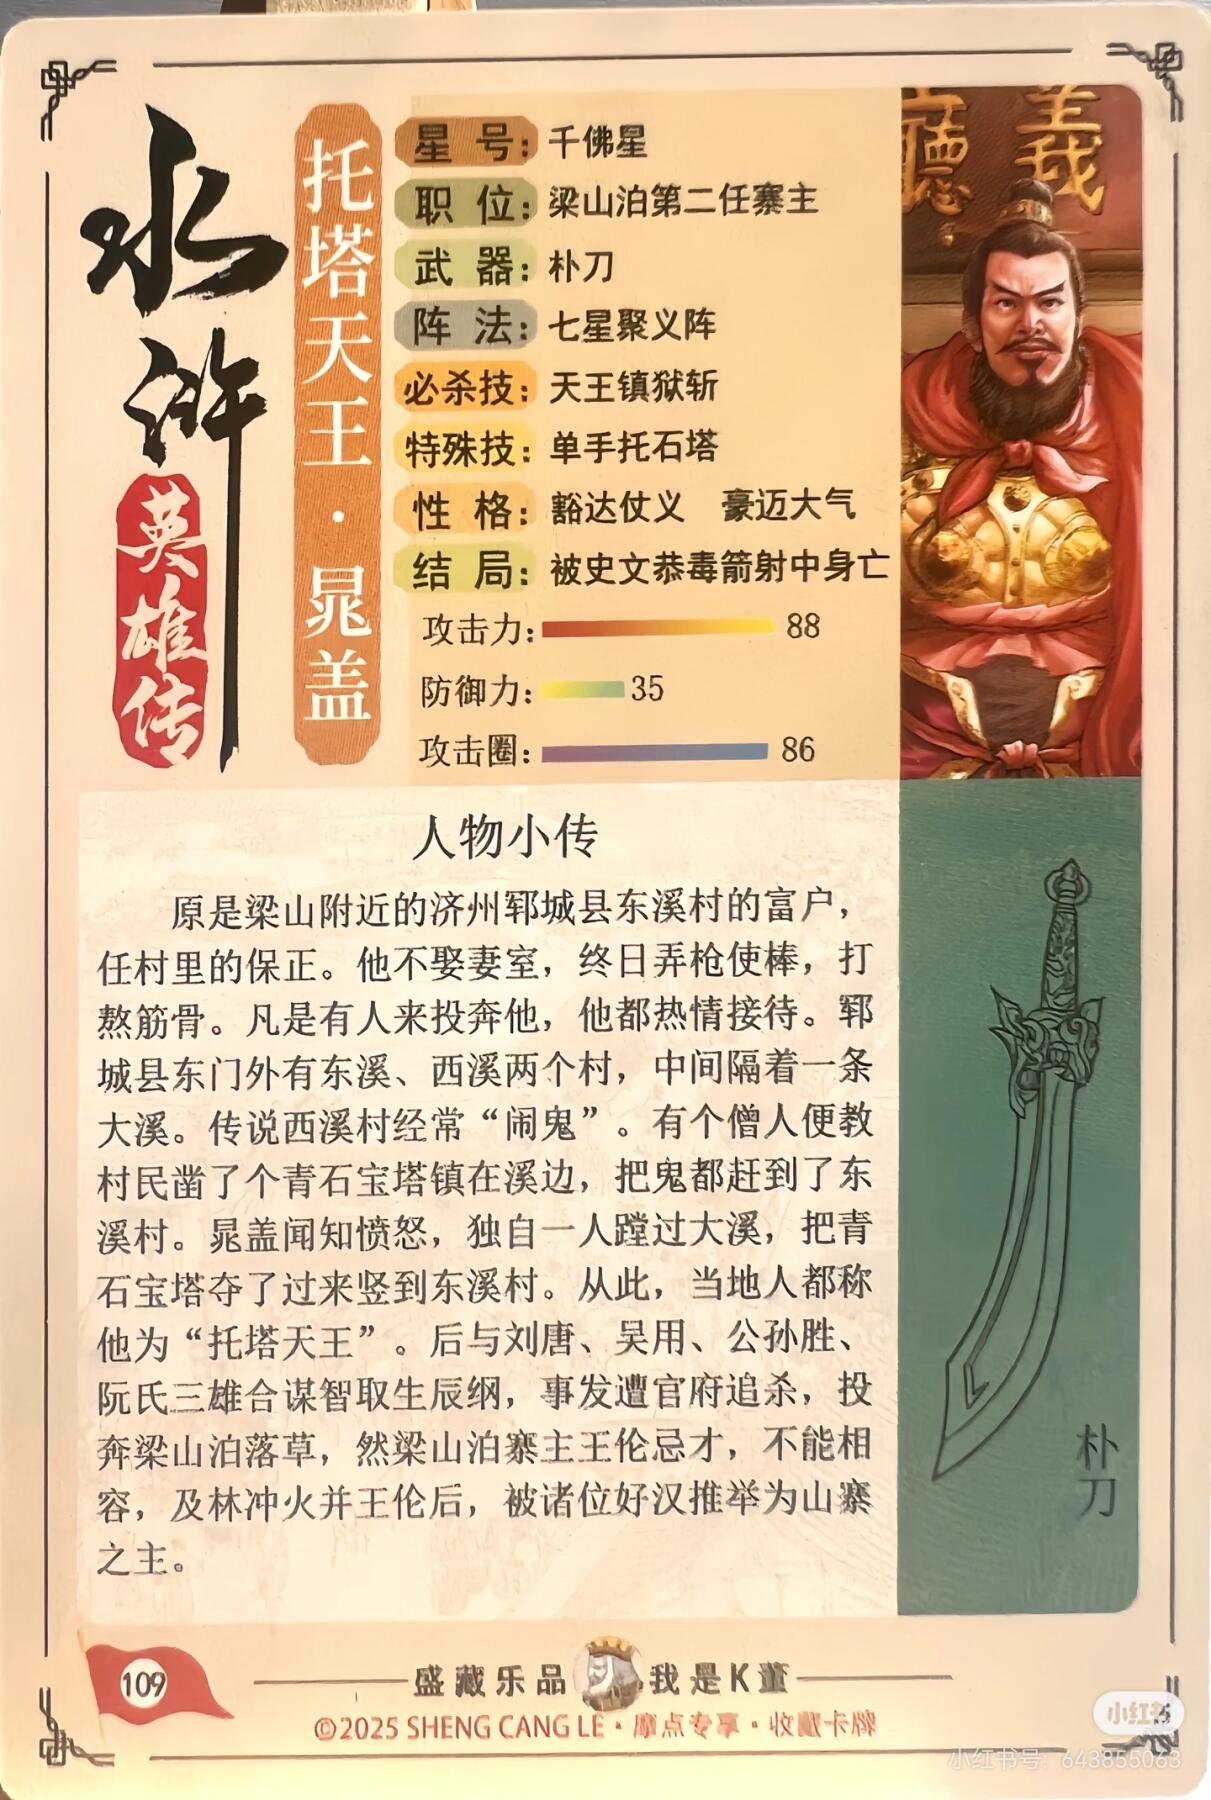 水浒
英雄传
托塔天王·晁盖
星号：千佛星
职位：梁山泊第二任寨主
武器：朴刀
阵法：七星聚义阵
必杀技：天王镇狱斩
特殊技：单手托石塔
性格：豁达仗义 豪迈大气
结局：被史文恭毒箭射中身亡
攻击力：88
防御力：35
攻击圈：86
義
廳
人物小传
原是梁山附近的济州郓城县东溪村的富户，
任村里的保正。他不娶妻室，终日弄枪使棒，打
熬筋骨。凡是有人来投奔他，他都热情接待。郓
城县东门外有东溪、西溪两个村，中间隔着一条
大溪。传说西溪村经常“闹鬼”。有个僧人便教
村民凿了个青石宝塔镇在溪边，把鬼都赶到了东
溪村。晁盖闻知愤怒，独自一人蹚过大溪，把青
石宝塔夺了过来竖到东溪村。从此，当地人都称
他为“托塔天王”。后与刘唐、吴用、公孙胜、
阮氏三雄合谋智取生辰纲，事发遭官府追杀，投
奔梁山泊落草，然梁山泊寨主王伦忌才，不能相
容，及林冲火并王伦后，被诸位好汉推举为山寨
之主。
朴刀
109
盛藏乐品 我是K董
©2025 SHENG CANG LE·摩点专享·收藏卡牌
小红书
小红书号：643855063